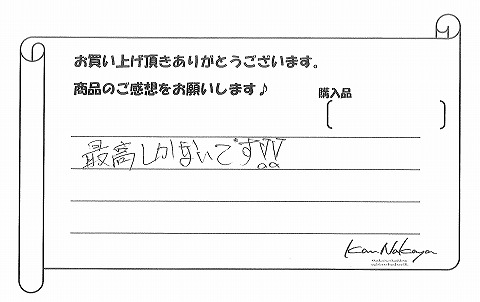 お買い上げ頂きありがとうございます。
商品のご感想をお願いします♪
購入品
最高しかないです!!
Kan Nakaya